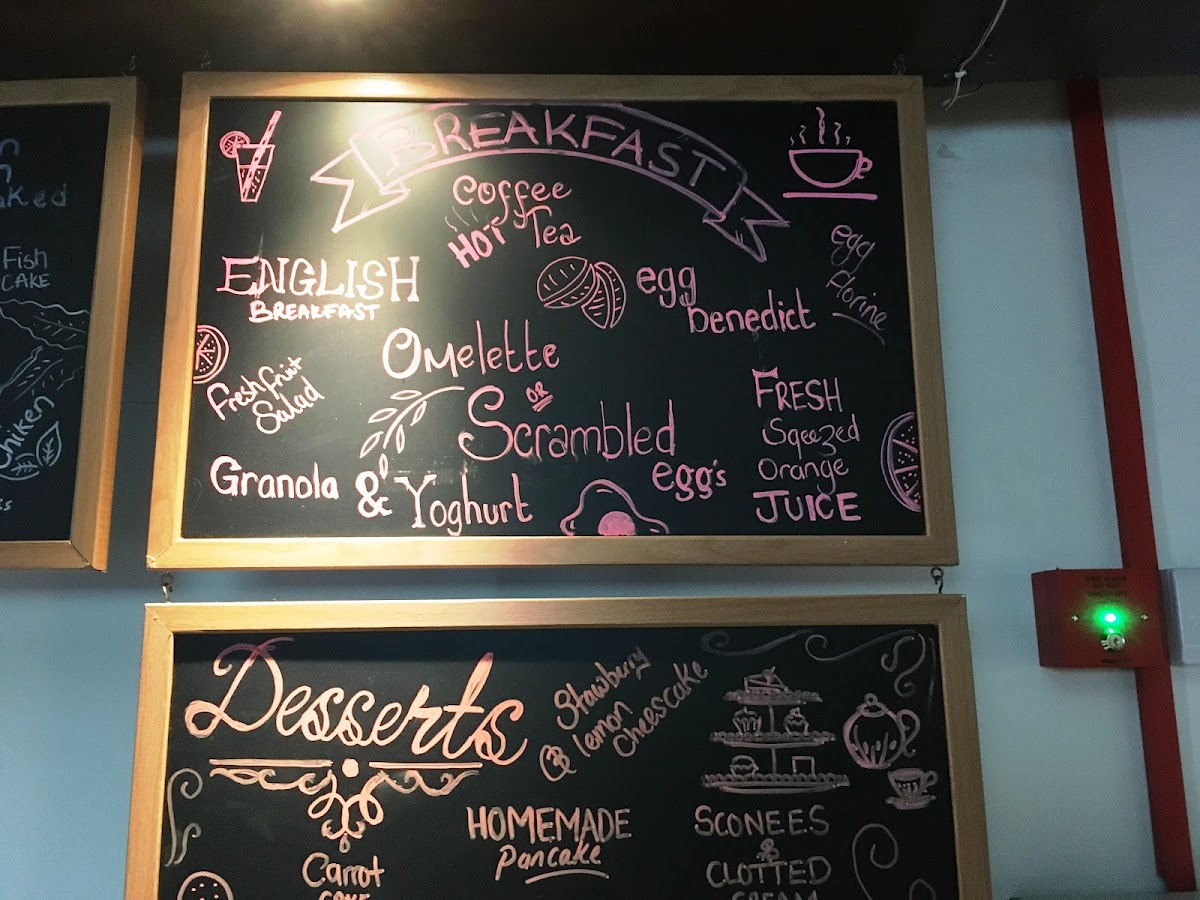 Fish
CAKE
Chiken
BREAKFAST
Coffee
HOT Tea
ENGLISH
BREAKFAST
egg
benedict
egg
florine
Omelette
OR
Scrambled
egg's
Fresh fruit
Salad
Granola & Yoghurt
FRESH
Sqeezed
Orange
JUICE
Desserts
Stawberry
& lemon
Cheescake
HOMEMADE
Pancake
SCONEES
&
CLOTTED
CREAM
Carrot
CAKE